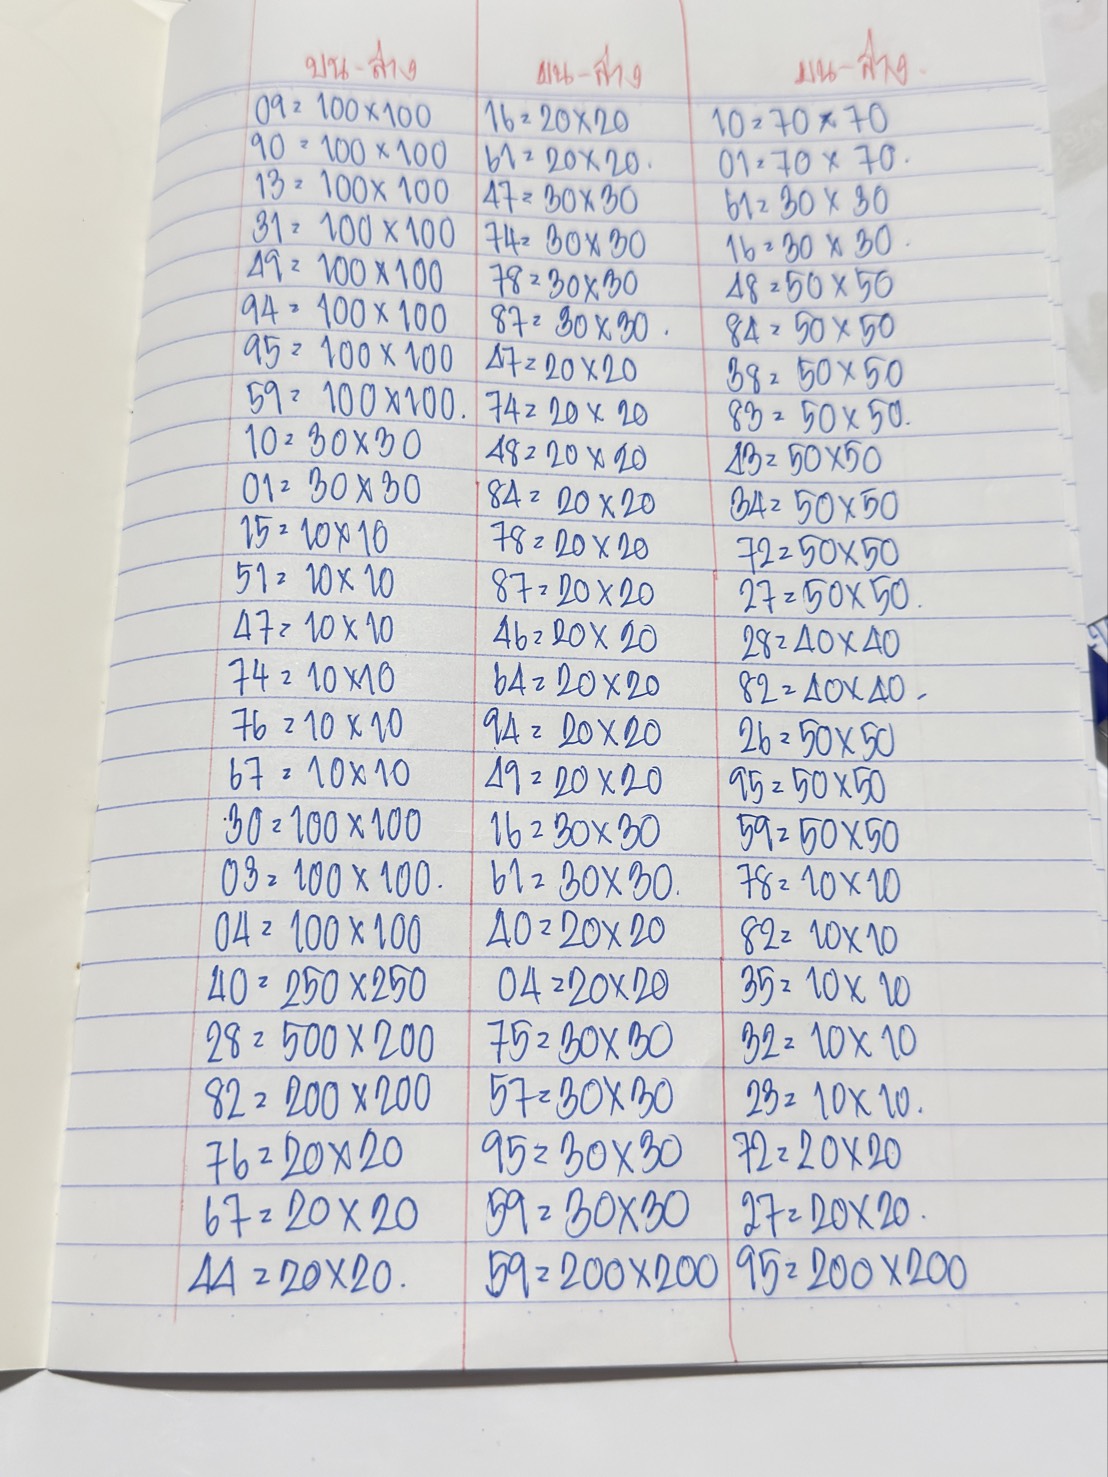 บน-ล่าง
09=100×100
90=100×100
13=100×100
31=100×100
49=100×100
94=100×100
95=100×100
59=100×100.
10=30×30
01=30×30
15=10×10
51=10×10
47=10×10
74=10×10
76=10×10
67=10×10
30=100×100
03=100×100.
04=100×100
40=250×250
28=500×200
82=200×200
76=20×20
67=20×20
44=20×20.
บน-ล่าง
16=20×20
61=20×20.
47=30×30
74=30×30
78=30×30
87=30×30.
47=20×20
74=20×20
48=20×20
84=20×20
78=20×20
87=20×20
46=20×20
64=20×20
94=20×20
49=20×20
16=30×30
61=30×30.
40=20×20
04=20×20
75=30×30
57=30×30
95=30×30
59=30×30
59=200×200
บน-ล่าง.
10=70×70
01=70×70.
61=30×30
16=30×30.
48=50×50
84=50×50
38=50×50
83=50×50.
43=50×50
34=50×50
72=50×50
27=50×50.
28=40×40
82=40×40-
26=50×50
95=50×50
59=50×50
78=10×10
82=10×10
35=10×10
32=10×10
23=10×10.
72=20×20
27=20×20.
95=200×200